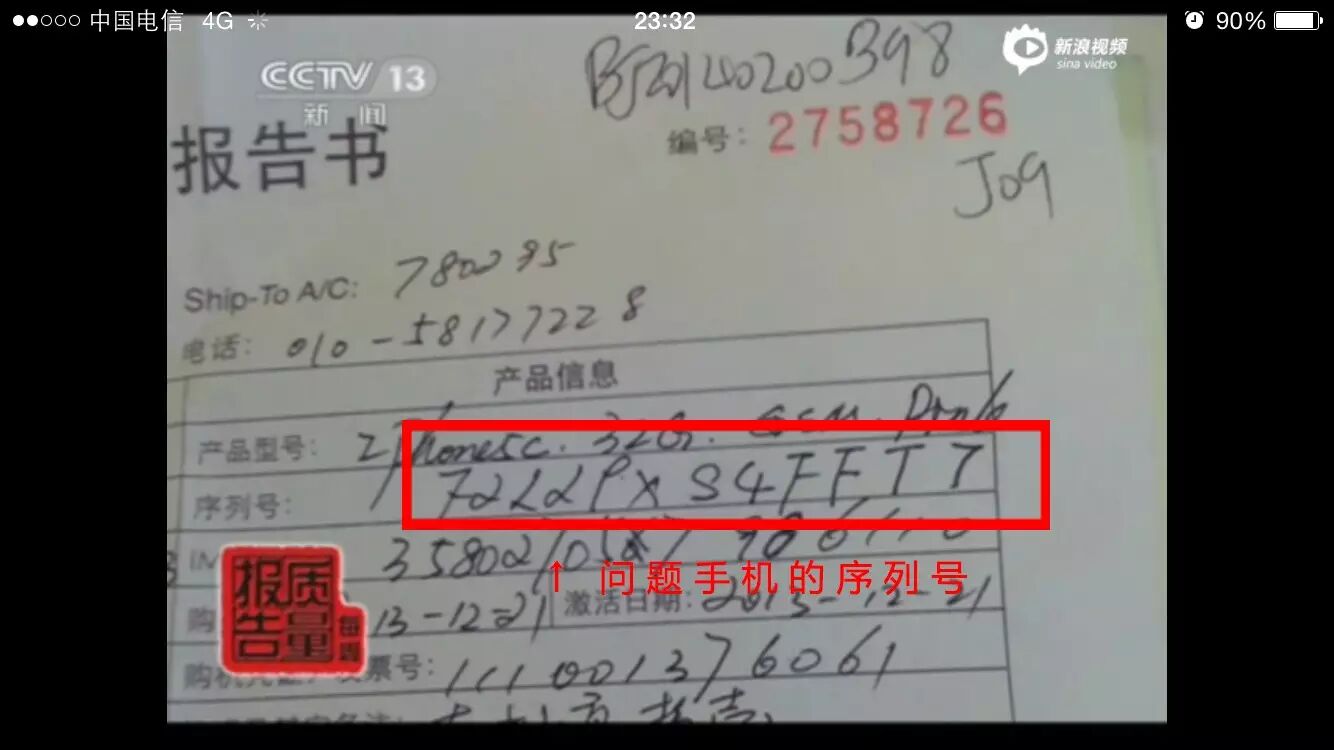 中国电信 4G 23:32 90%
CCTV 13
新闻
新浪视频
sina video
BJZ0140200398
报告书
编号: 2758726
J09
Ship-To A/C: 7800395
电话: 010-58177228
产品信息
产品型号: iPhone5c. 32G. GSM. Pink
序列号: 72L2PXS4FFT7
↑ 问题手机的序列号
13-12-21 激活日期: 2013-12-21
票号: 111001376061
质量报告
每周